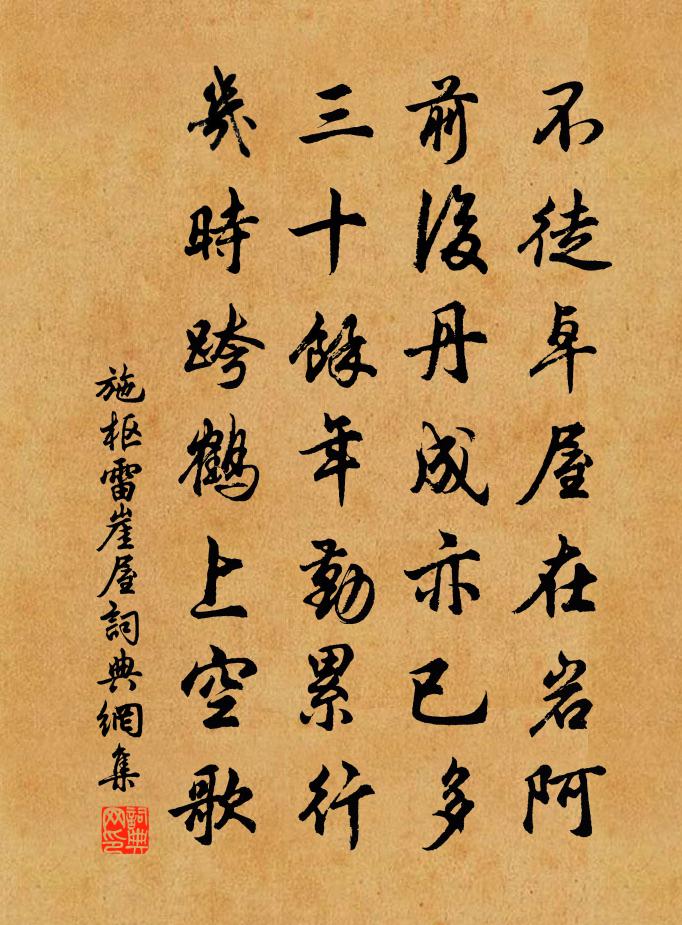 不徒卓屋在岩阿
前後丹成亦已多
三十餘年勤累行
幾時跨鶴上空歌
施枢雷崖屋詞典網集
詞典网印